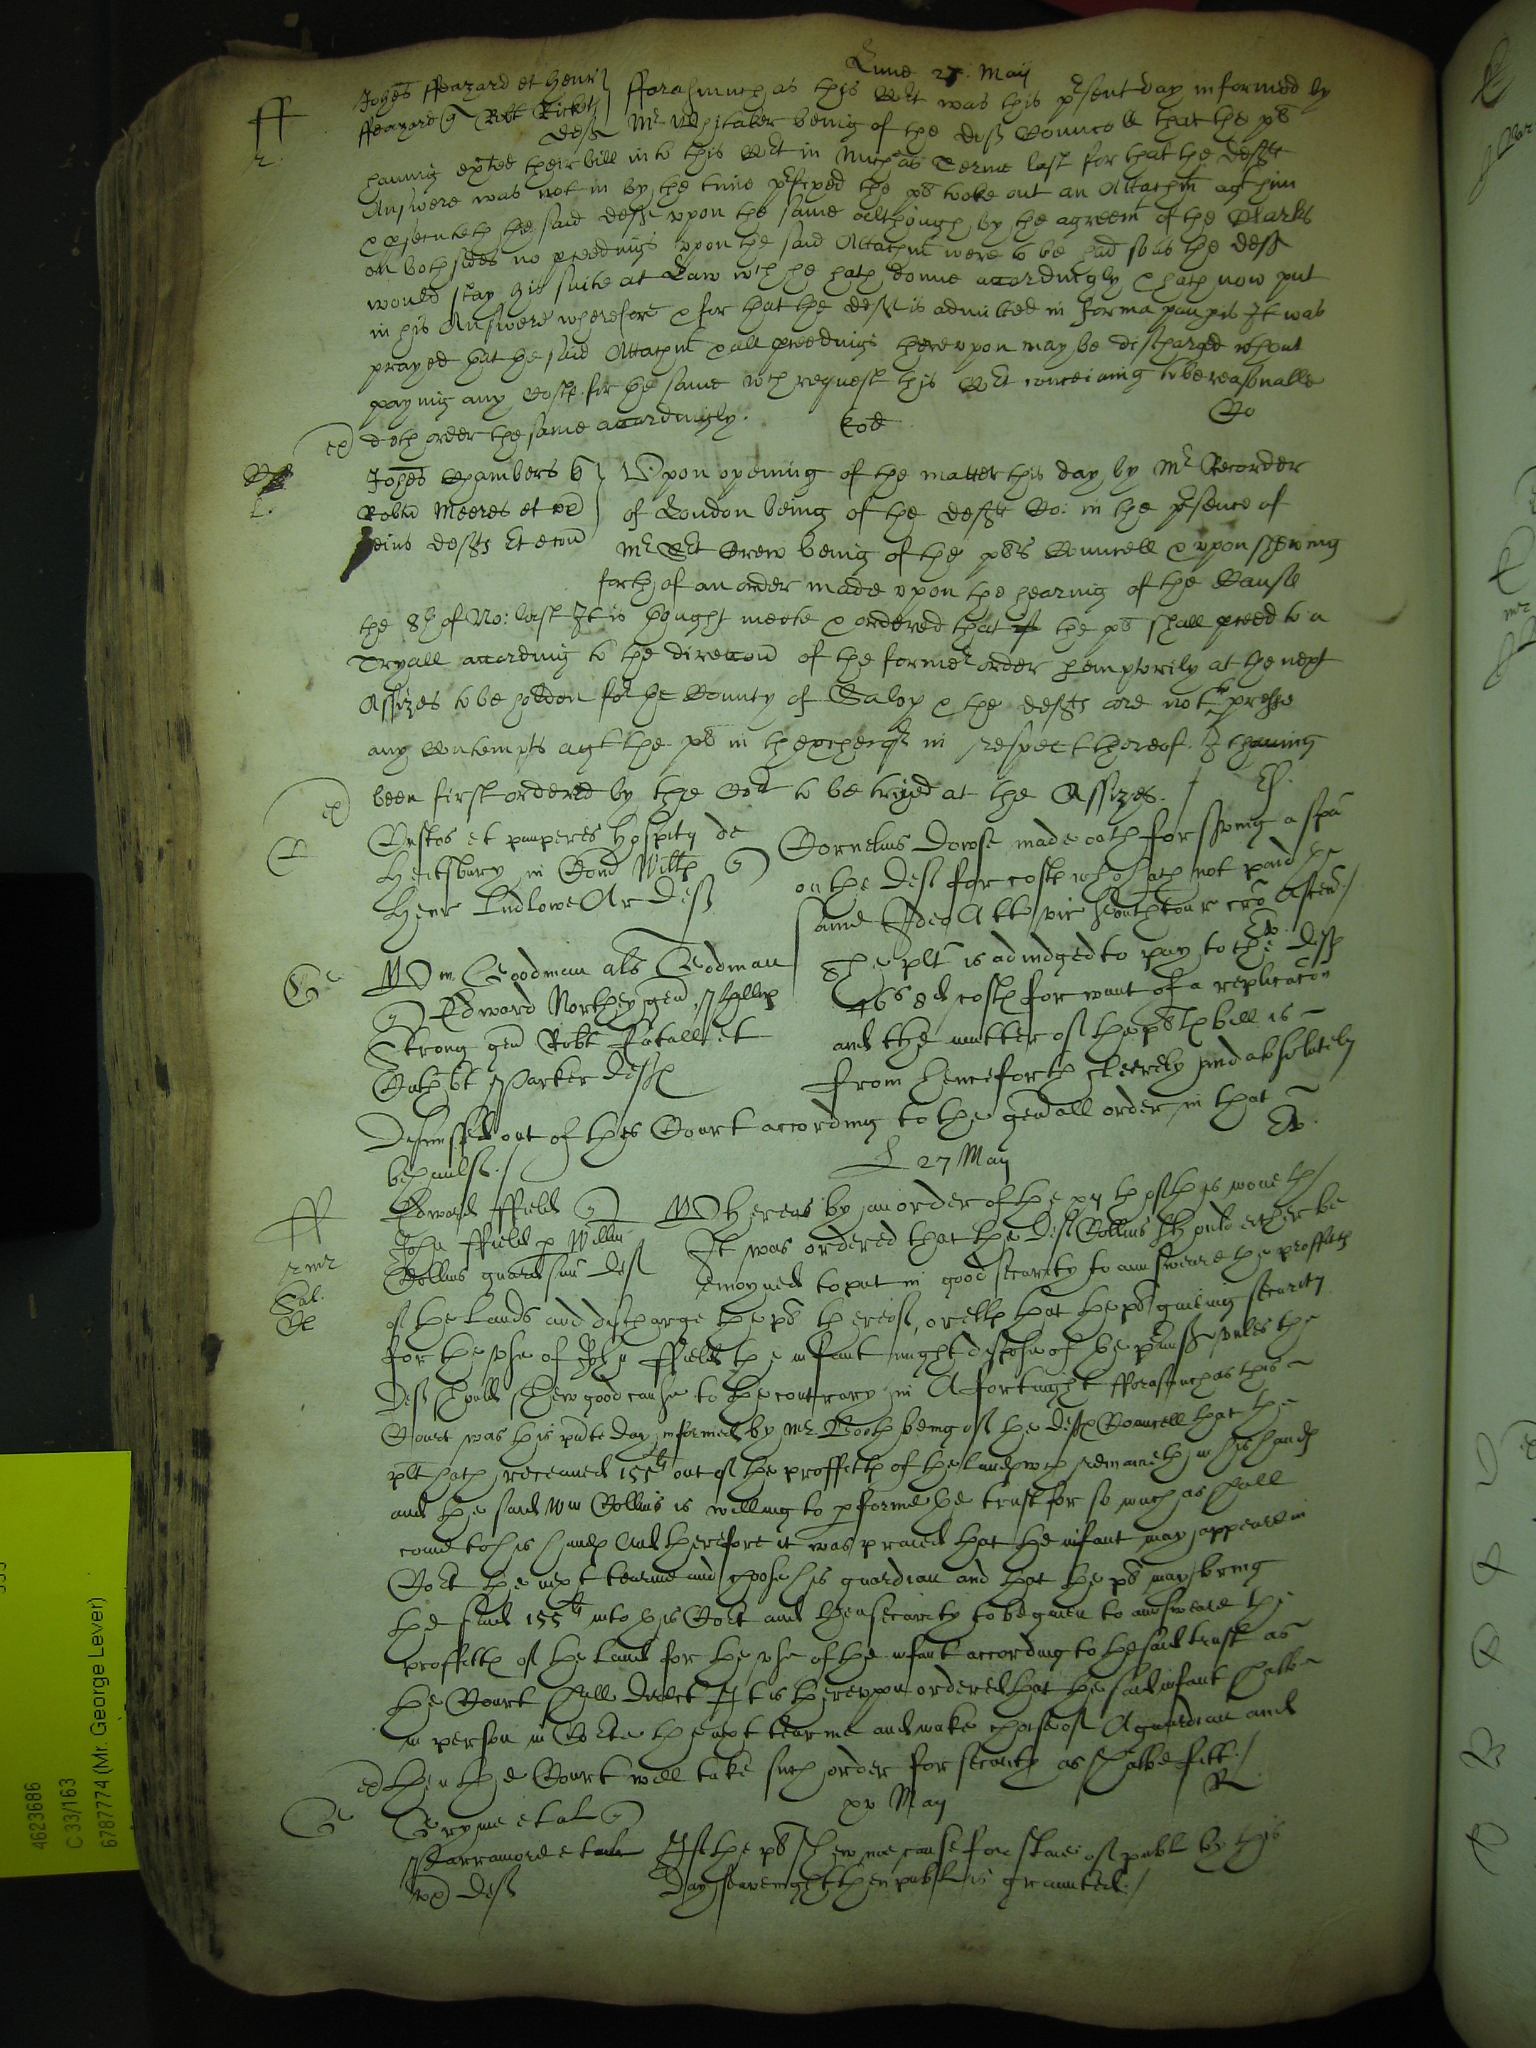 Lune 27. Maij
ff
r.
Johes ffezard et Henr
ffezard q Robt Rickett
deft
fforasmuch as this Cort was this prsent day informed by
Mr Whitaker being of the deft Councell that the pl
having exhited their bill into this Cort in Michas Terme last for that the defts
Answere was not in by the time prfixed the pl tooke out an Attachmt agt him
the said deft upon the same although by the agreemt of the Clarks
on both sides no pceedings upon the said Attachmt were to be had so as the deft
would stay his suite at Law wch he hath donne accordingly & hath now put
in his Answere wherefore & for that the deft is admitted in forma paupis It was
prayed that the said Attachmt & all pceedings thereupon may be discharged wthout
paying any Costs for the same wch request this Cort conceiving to be reasonable
ex doth order the same accordingly.
Co
Johes Chambers q
Robtu Meeres et ux
eius defts Et econ
Upon opening of the matter this day by Mr Recorder
of London being of the defts Co: in the prsence of
Mr Crew being of the pls Councell & upon shewing
forth of an order made upon the hearing of the Cause
the 8th of No: last It is thought meete & ordered that the pl shall pceed to a
Tryall according to the direccon of the former order pemptorily at the next
Assizes to be holden for the County of Salop & the defts are not to
any Contempts agt the pl in thexchequer in respect thereof It having
ex been first ordered by the Cort to be tryed at the Assizes.
C
Custos et pauperes hospitij de
Heitsbury in Com Wiltes q
Henr Ludlowe Ar deft
Cornelius Dowse made oath for sving a spa
on the deft for costs who hath not paid the
same Ideo Att vic
G
Wm Goodman als Godman
q Edward Northey gen Phillip
Strong gen Robt et
Cuthbt Parker defts
The plt is adiudged to pay to the defts
46s 8d costs for want of a replicacon
and the matter of the pls bill is
from henceforth cleerely and absolutely
dismissed out of this Court according to the genall order in that
behaulfe./
L 27 Maij
ff
Edward ffield q
John ffield p Willm
Collins guard suu deft
Whereas by an order of the xjth of this moneth
It was ordered that the deft Collins should either be
enioyned to put in good security to aunsweare the proffitts
of the lands and discharge the pl thereof, or ells that the pl giving security
for the use of John ffield the infant might dispose of the prmisses unles the
deft should shew good cause to the contrary in A fortnight fforasmuch as this
Court was this pnte day informed by Mr Booth being of the defts Councell that the
plt hath receaved 155li out of the proffitts of the lands wch remaineth in his hands
and the said Wm Collins is willing to pforme the trust for so much as shall
come to his hands And therefore it was praied that the infant may appeare in
Cort the next tearme and choose his guardian and that the pl may bring
the said 155li into this Cort and then security to be given to aunsweare the
proffitts of the land for the use of the infant according to the said trust as
the Court shall direct It is thereupon ordered that the said infant shalbe
in person in Corte the next tearme and make choise of A guardian and
ex then the Court will take such order for security as shalbe fitt./
R
xv Maij
G
Gryme et al q
Parramore et
ux deft
If the pl shew noe cause for staie of publ by this
day seavenight then publ is graunted./
4623686
C 33/163
6787774 (Mr. George Lever)